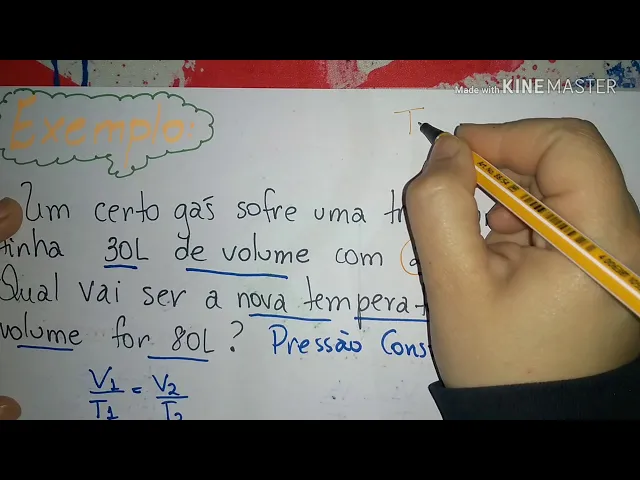 Made with KINEMASTER
Exemplo:
T
Um certo gás sofre uma
tinha 30L de volume com
Qual vai ser a nova
volume for 80L? Pressão
V1 = V2
T1 T2